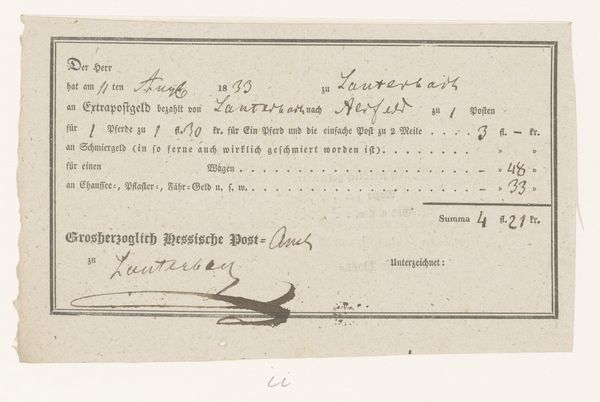 Der Herr
hat am 11 ten Aug 1833 zu Lauterbach
an Extrapostgeld bezahlt von Lauterbach nach zu 1 Posten
für 1 Pferde zu 1 fl. 30 kr. für Ein Pferd und die einfache Post zu 2 Meile . . . . 3 fl. – kr.
an Schmiergeld (in so ferne auch wirklich geschmiert worden ist). . . . . . . . . " "
für einen Wagen . . . . . . . . . . . . – " 48 "
an Chaussee-, Pflaster-, Fähr-Geld u. s. w. . . . . . . . . . . . . – " 33 "
Summa 4 fl. 21 kr.
Grosherzoglich Hessische Post-Amt
zu Lauterbach
Unterzeichnet:
ii